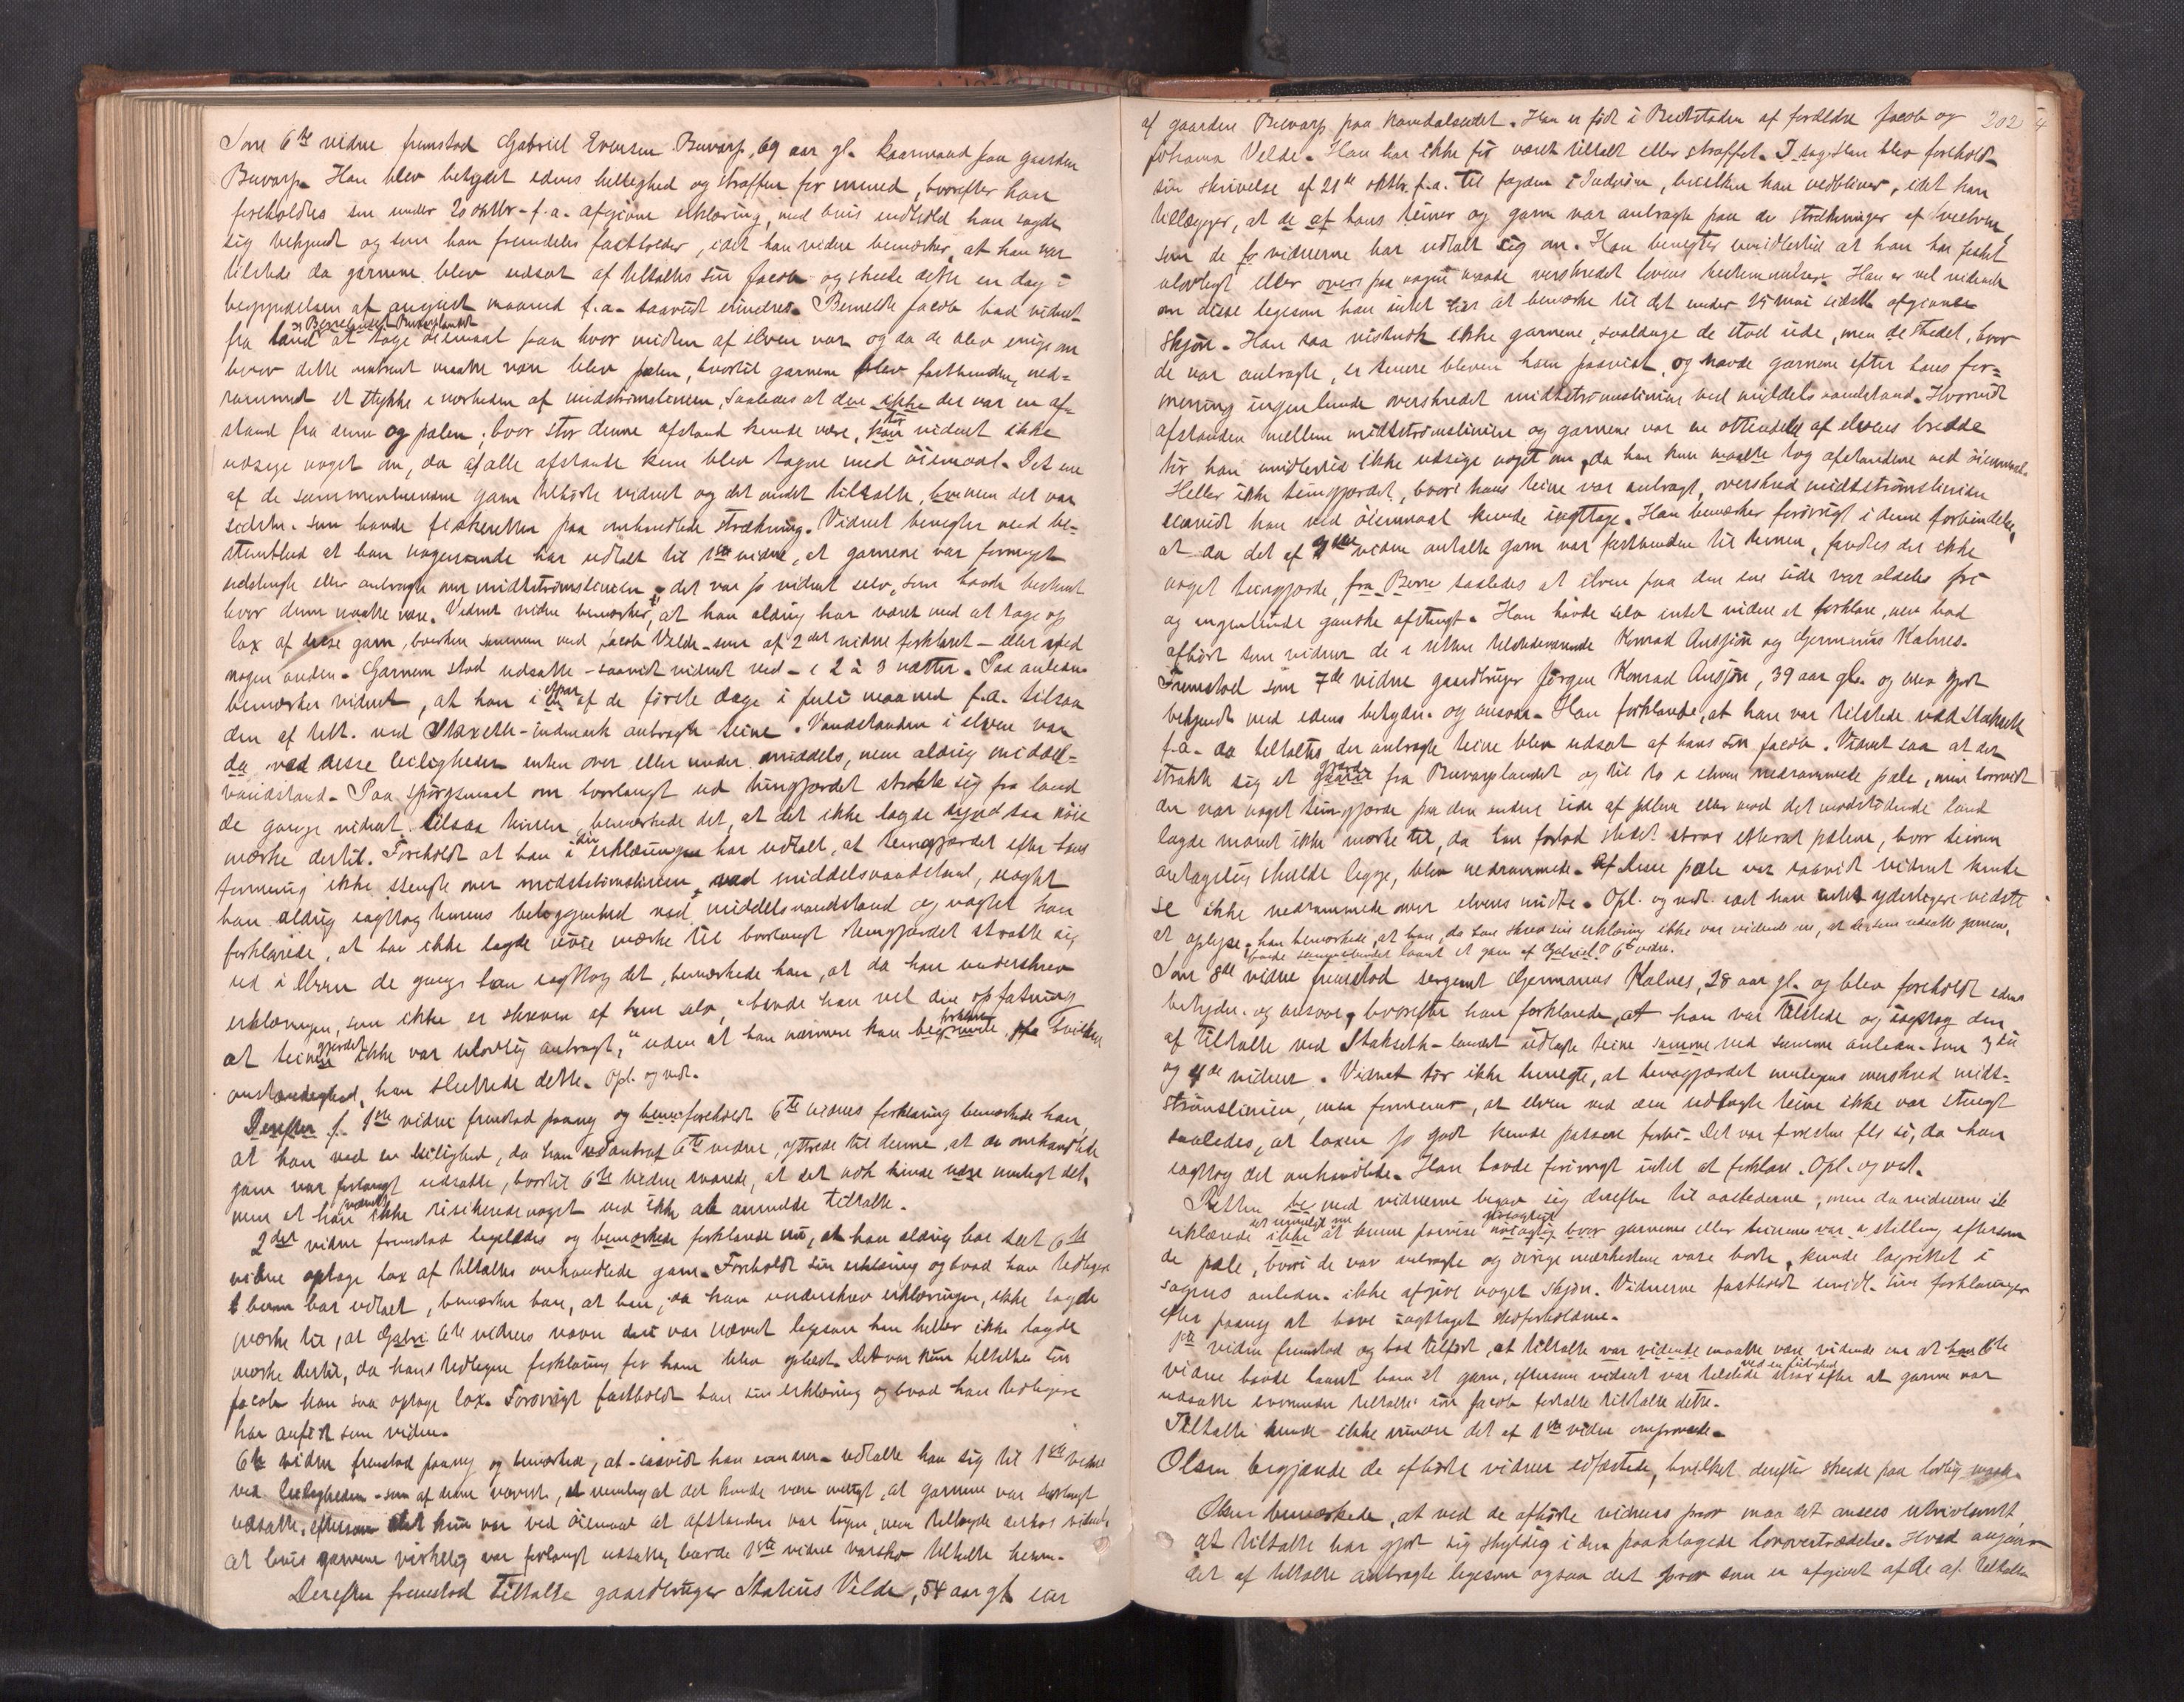 Som 6te vidne fremstod Gabriel Evensen Buvarp, 69 aar gl. kaarmand paa gaarden
Buvarp. Han blev betydet edens hellighed og straffen for mened, hvorefter han
foreholdtes sin under 20 oktbr. f.a. afgivne erklæring, med hvis indhold han sagde
sig bekjendt og som han fremdeles fastholder, idet han videre bemærker, at han var
tilstede da garnene blev udsat af tiltaltes søn Jacob og skede dette en dag i
begyndelsen af august maaned f.a. saavidt erindres. Bemeldte Jacob bad vidnet
fra land at tage øiemaal paa hvor midten af elven var og da de blev enige om
hvor dette omtrent maatte være blev pælen, hvortil garnene blev fastbunden, ned-
rammet et stykke i nærheden af midtstrømslinien, saaledes at der var en af-
stand fra denne og pælen; hvor stor denne afstand kunde være, tør vidnet ikke
udsige noget om, da alle afstande kun blev tagne med øiemaal. Det ene
af de sammenbundne garn tilhørte vidnet og det andet tiltalte, hvem det var
sidstn. som havde fiskeretten paa omhandlede strækning. Vidnet benegter med be-
stemthed at han nogensinde har udtalt til 1ste vidne, at garnene var formeget
udstrengte eller anbragte over midtstrømslinien; det var jo vidnet selv, som havde bestemt
hvor denne maatte være. Vidnet videre bemærker, at han aldrig har været med at tage op
lax af disse garn, hverken sammen med Jacob Velde - som af 2det vidne forklaret - eller med
nogen anden. Garnene stod udsatte - saavidt vidnet ved - i 2 à 3 nætter. Paa anledn.
bemærker vidnet, at han i et par af de første dage i juli maaned f.a. tilsaa
den af tilt. ved Stakseth-indmark anbragte teine. Vandstanden i elven var
da ved disse leiligheder enten over eller under middels, men aldrig middel-
vandstand. Paa spørgsmaal om hvorlangt ud teingjerdet strakte sig fra land
de gange vidnet tilsaa teinen, bemærkede det, at det ikke lagde saa nøie
mærke dertil. Foreholdt at han i sin erklæring har udtalt, at teingjerdet efter hans
formening ikke stengte over midtstrømslinien ved middelsvandstand, uagtet
han aldrig iagttog teinens beliggenhed ved middelsvandstand og uagtet han
forklarede, at han ikke lagde nøie mærke til hvorlangt teingjerdet strakte sig
ud i elven de gange han iagttog det, bemærkede han, at da han underskrev
erklæringen, som ikke er skreven af ham selv, "havde han vel den opfatning
at teingjerdet ikke var ulovlig anbragt," uden at han nærmere kan forklare, af hvilken
omstændighed, han sluttede dette. Opl. og vedt.
Derefter 1ste vidne fremstod paany og foreholdt 6te vidnes forklaring bemærkede han,
at han ved en leilighed, da han antraf 6te vidne, yttrede til denne, at de omhandlede
garn var forlangt udsatte, hvortil 6te vidne svarede, at det nok kunde være muligt det,
men at han ikke risikerede noget ved ikke at anmelde tiltalte.
2det vidne fremstod ligeledes og forklarede nu, at han aldrig har seet 6te
vidne optage lax af tiltaltes omhandlede garn. Foreholdt sin erklæring og hvad han tidligere
har udtalt, bemærker han, at han, da han underskrev erklæringen, ikke lagde
mærke til, at 6te vidnes navn deri var nævnt ligesom han heller ikke lagde
mærke dertil, da hans tidligere forklaring for ham blev oplæst. Det var kun tiltaltes søn
Jacob han saa optage lax. Forøvrigt fastholdt han sin erklæring og hvad han tidligere
har anført som vidne.
6te vidne fremstod paany og bemærkede, at - saavidt han erindrer - udtalte han sig til 1ste vidne
ved leiligheden - som af denne nævnt, nemlig at det kunde være muligt, at garnene var forlangt
udsatte, eftersom det kun var ved øiemaal at afstanden var tagen, men tilføiede derhos vidnet,
at hvis garnene virkelig var forlangt udsatte, burde 1ste vidne varsko tiltalte herom.
Derefter fremstod tiltalte gaardbruger Statius Velde, 54 aar gl. eier
af gaarden Buvarp paa Namdalseidet. Han er født i Beitstaden af forældre Jacob og 202
Johanna Velde. Han har ikke før været tiltalt eller straffet. I sagen blev foreholdt
sin skrivelse af 21de oktbr. f.a. til fogden i Inderøen, hvilken han vedbliver, idet han
tillægger, at de af hans teiner og garn var anbragte paa de strækninger af elven,
som de vidnerne har udtalt sig om. Han benegter imidlertid at han har fisket
ulovligt eller paa nogen maade overskredet lovens bestemmelser. Han er vel vidende
om disse ligesom han intet har at bemærke til det under 25 mai sidstl. afgivne
skjøn. Han saa vistnok ikke garnene, saalænge de stod ude, men stedet, hvor
de var anbragte, er senere bleven ham paavist, og havde garnene efter hans for-
mening ingenlunde overskredet midtstrømslinien ved middels vandstand. Hvorvidt
afstanden mellem midtstrømslinien og garnene var en ottendedel af elvens bredde
tør han imidlertid ikke udsige noget om, da han kun tog afstandene ved øiemaal.
Heller ikke teingjerdet, hvori hans teine var anbragt, overskred midtstrømslinien
saavidt han ved øiemaal kunde iagttage. Han bemærker forøvrigt i denne forbindelse,
at da det af vidne omtalte garn var fastbunden til teinen, fandtes der ikke
noget teingjerde, fra Berre saaledes at elven paa den ene side var aldeles fri
og ingenlunde ganske afstengt. Han havde selv intet videre at forklare, men bad
afhørt som vidner de i retten tilstedeværende Konrad Ansjøn og Germanus Kalnes.
Fremstod som 7de vidne gaardbruger Jørgen Konrad Ansjøn, 39 aar gl. og blev gjort
bekjendt med edens betydn. og ansvar. Han forklarede, at han var tilstede ved Stakseth
f.a. da tiltaltes der anbragte teine blev udsat af hans søn Jacob. Vidnet saa at der
strakk sig et gjerde fra Buvarplandet og til to i elven nedrammede pæle, men hvorvidt
der var noget teingjerde paa den anden side af pælene eller mod det modstødende land
lagde vidnet ikke mærke til, da han forlod stedet strax efterat pælene, hvor teinen
antagelig skulde ligge, blev nedrammede. Disse pæle var saavidt vidnet kunde
se ikke nedrammede over elvens midte. Opl. og vedt. idet han intet yderligere vidste
at oplyse. han bemærkede, at han, da han skrev sin erklæring ikke var vidende om, at de som udsatte garnene,
havde sammenbundet laant et garn af 6te vidne.
Som 8de vidne fremstod sergeant Germanus Kalnes, 28 aar gl. og blev foreholdt edens
betydn. og ansvar, hvorefter han forklarede, at han var tilstede og iagttog den
af tiltalte ved Stakseth-landet udlagte teine ved samme anledn. som 3die
og 4de vidner. Vidnet tør ikke benegte, at teingjerdet muligens overskred midt-
strømslinien, men formener, at elven ved den udlagte teine ikke var stengt
saaledes, at laxen jo godt kunde passere forbi. Det var f.a., da han
iagttog det omhandlede. Han havde forøvrigt intet at forklare. Opl. og vedt.
Retten med vidnerne begav sig derefter til aastederne, men da vidnerne
erklærede det umuligt nu at kunne paavise nøiagtig hvor garnenes eller teinenes stilling eftersom
de pæle, hvori de var anbragte og øvrige mærkestene vare borte, kunde lagretten i
sagens anledn. ikke afgive noget skjøn. Vidnerne fastholdt imidl. sine forklaringer
efter paany at have iagttaget stedforholdene.
1ste vidne fremstod og bad tilført, at tiltalte maatte være vidende om at 6te
vidne havde laant ham et garn, eftersom vidnet var tilstede ved en leilighed strax efter at garnene var
udsatte hvorunder tiltaltes søn Jacob fortalte tiltalte dette.
Tiltalte kunde ikke erindre det af 1ste vidne omprovede.
Olsen begjærede de afhørte vidner edfæstede, hvilket derefter skede paa lovlig maade.
Olsen bemærkede, at ved de afhørte vidners prov maa det ansees utvivlsomt,
at tiltalte har gjort sig skyldig i den paaklagede lovovertrædelse. Hvad angaar
det af tiltalte anbragte ligesom ogsaa det prov som er afgivet af de af tiltalte